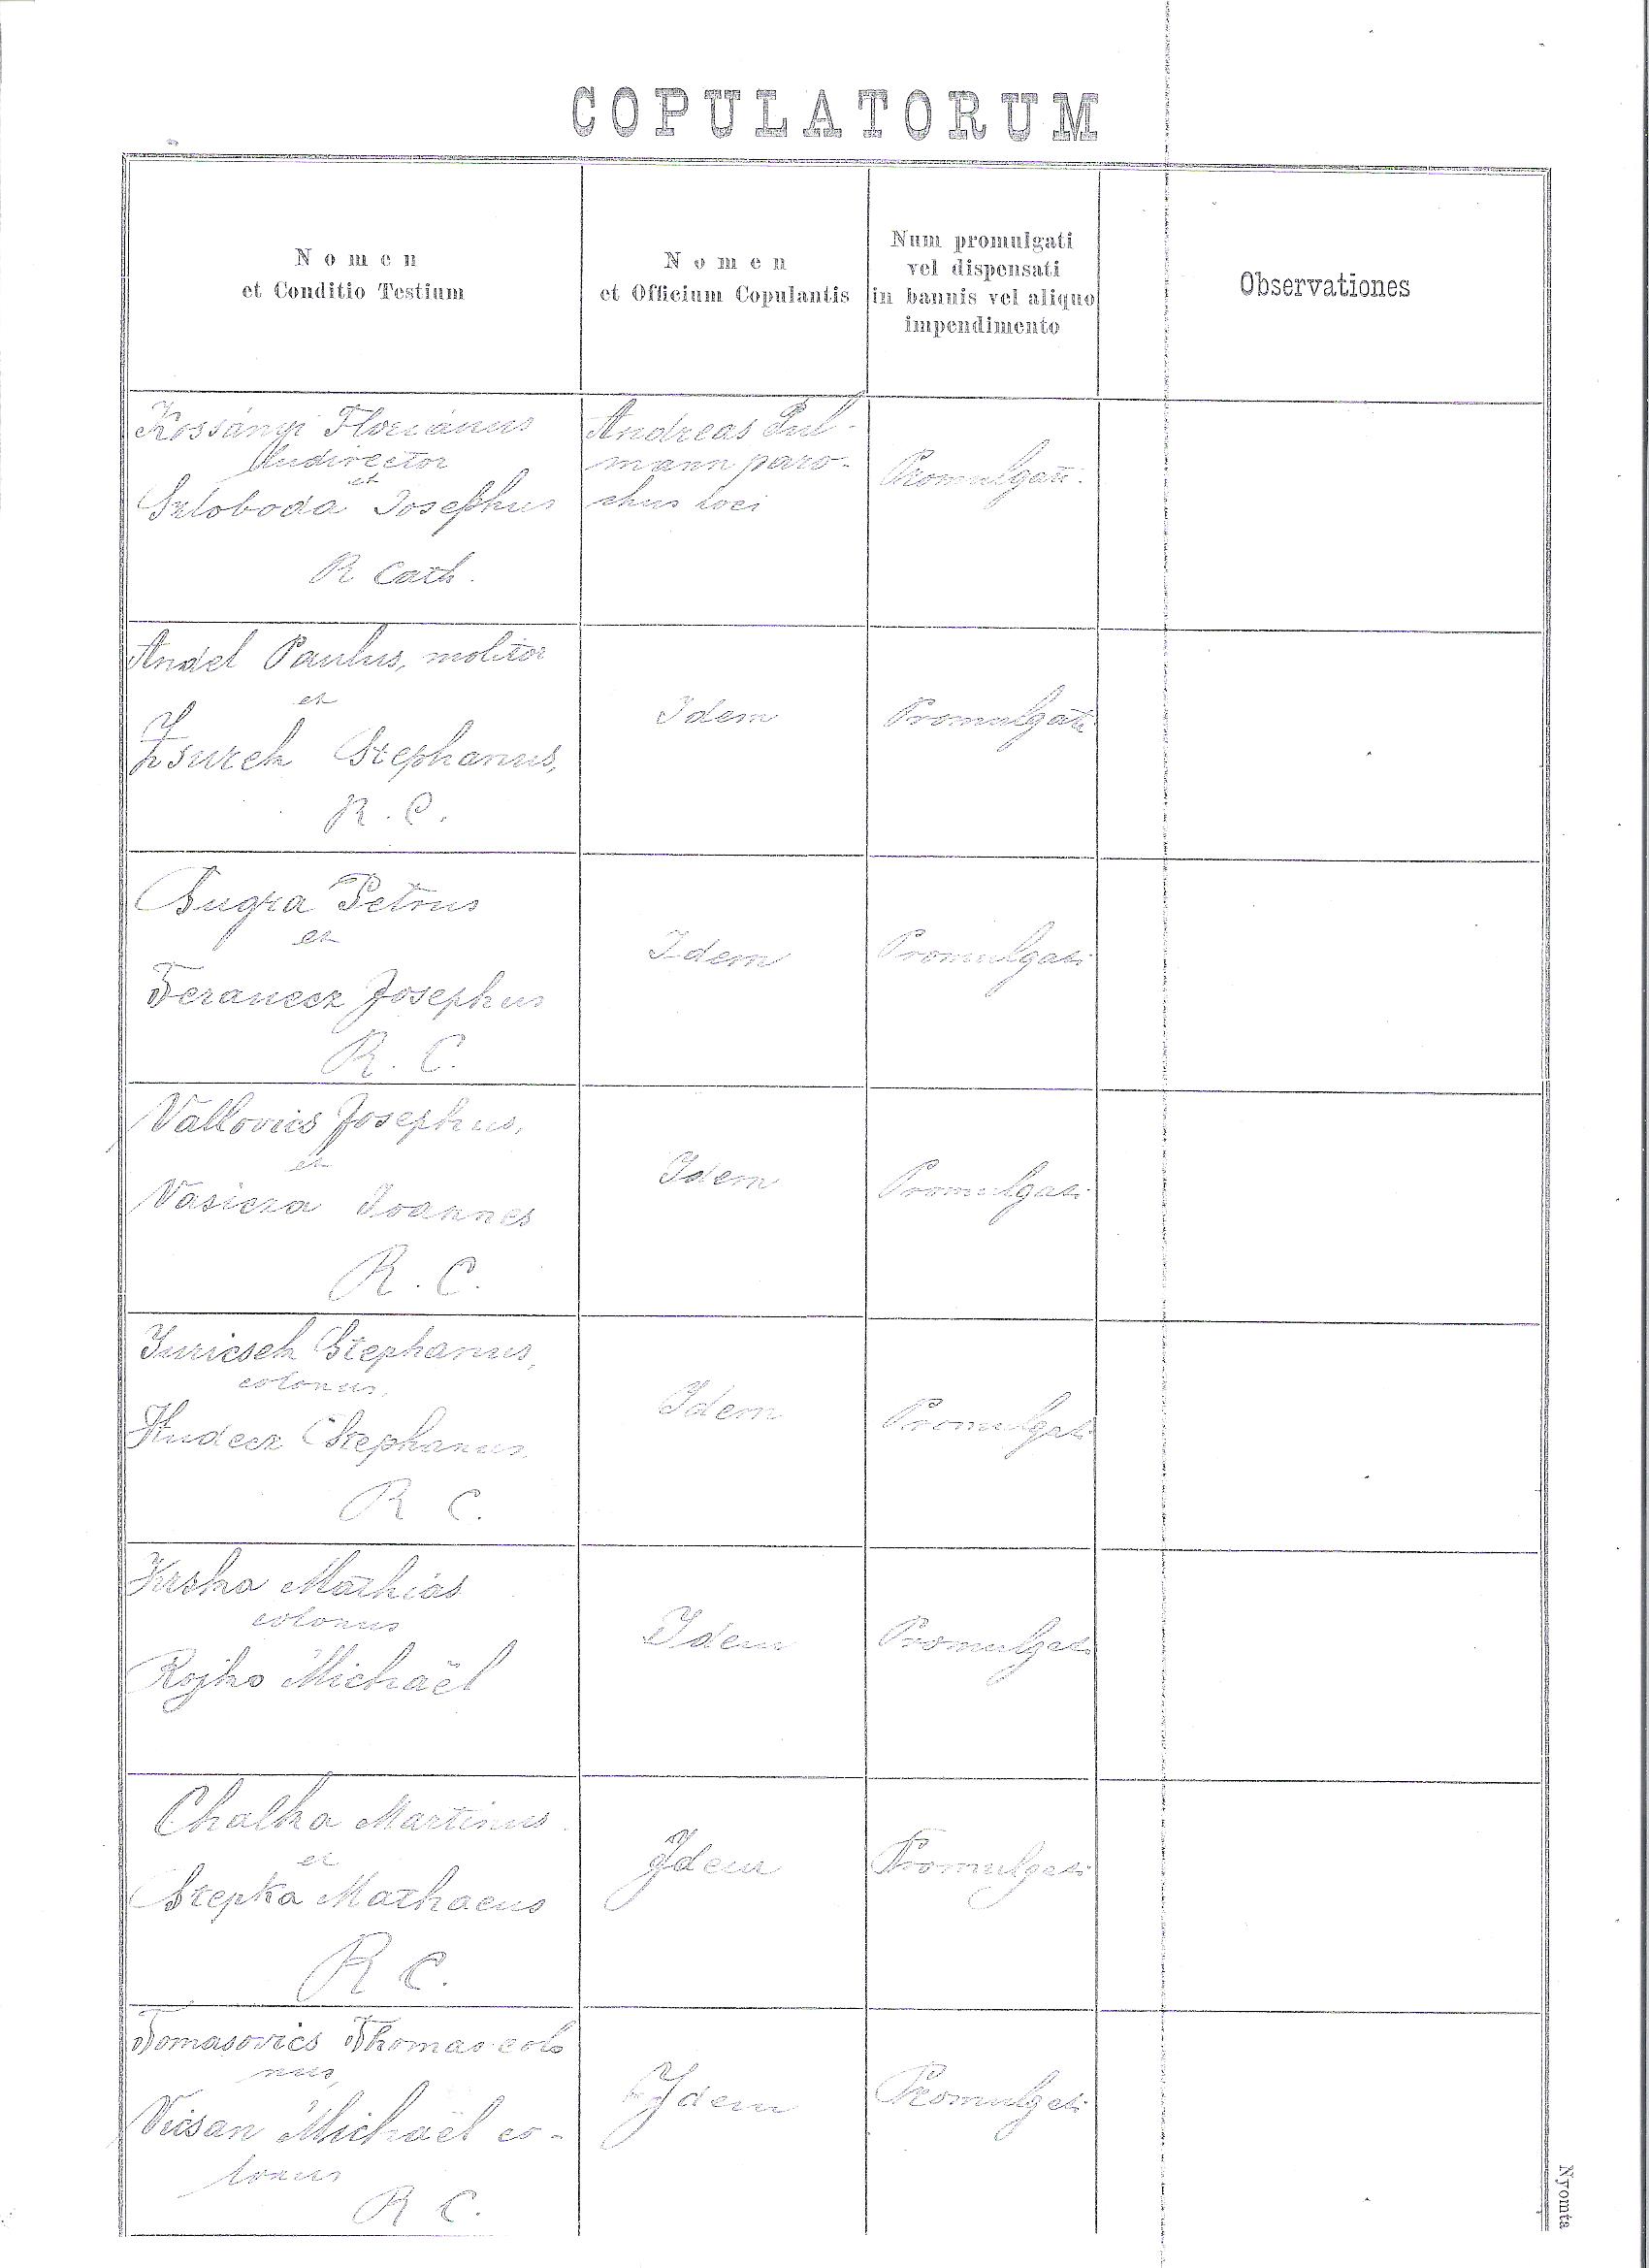 COPULATORUM
Nomen
et Conditio Testium
Nomen
et Officium Copulantis
Num promulgati
vel dispensati
in bannis vel aliquo
impendimento
Observationes
Kossányi Florianus
et
Szloboda Josephus
R Cath.
Andreas Pul-
mann paro-
chus loci
Promulgati.
Andel Paulus, molitor
et
Zsurek Stephanus,
R. C.
Idem
Promulgati
Sugra Petrus
et
Teranecz Josephus
R. C.
Idem
Promulgati
Vallovics Josephus,
et
Vasicza Joannes
R. C.
Idem
Promulgati
Juricsek Stephanus,
colonus,
Hudecz Stephanus,
R C.
Idem
Promulgati
Krska Mathias
colonus
Rojko Michaël
Idem
Promulgati
Chalka Martinus.
et
Stepka Mathaeus
R C.
Idem
Promulgati
Tomasovics Thomas colo
nus,
Vicsan Michaël co-
lonus
R C.
Idem
Promulgati
Nyomta